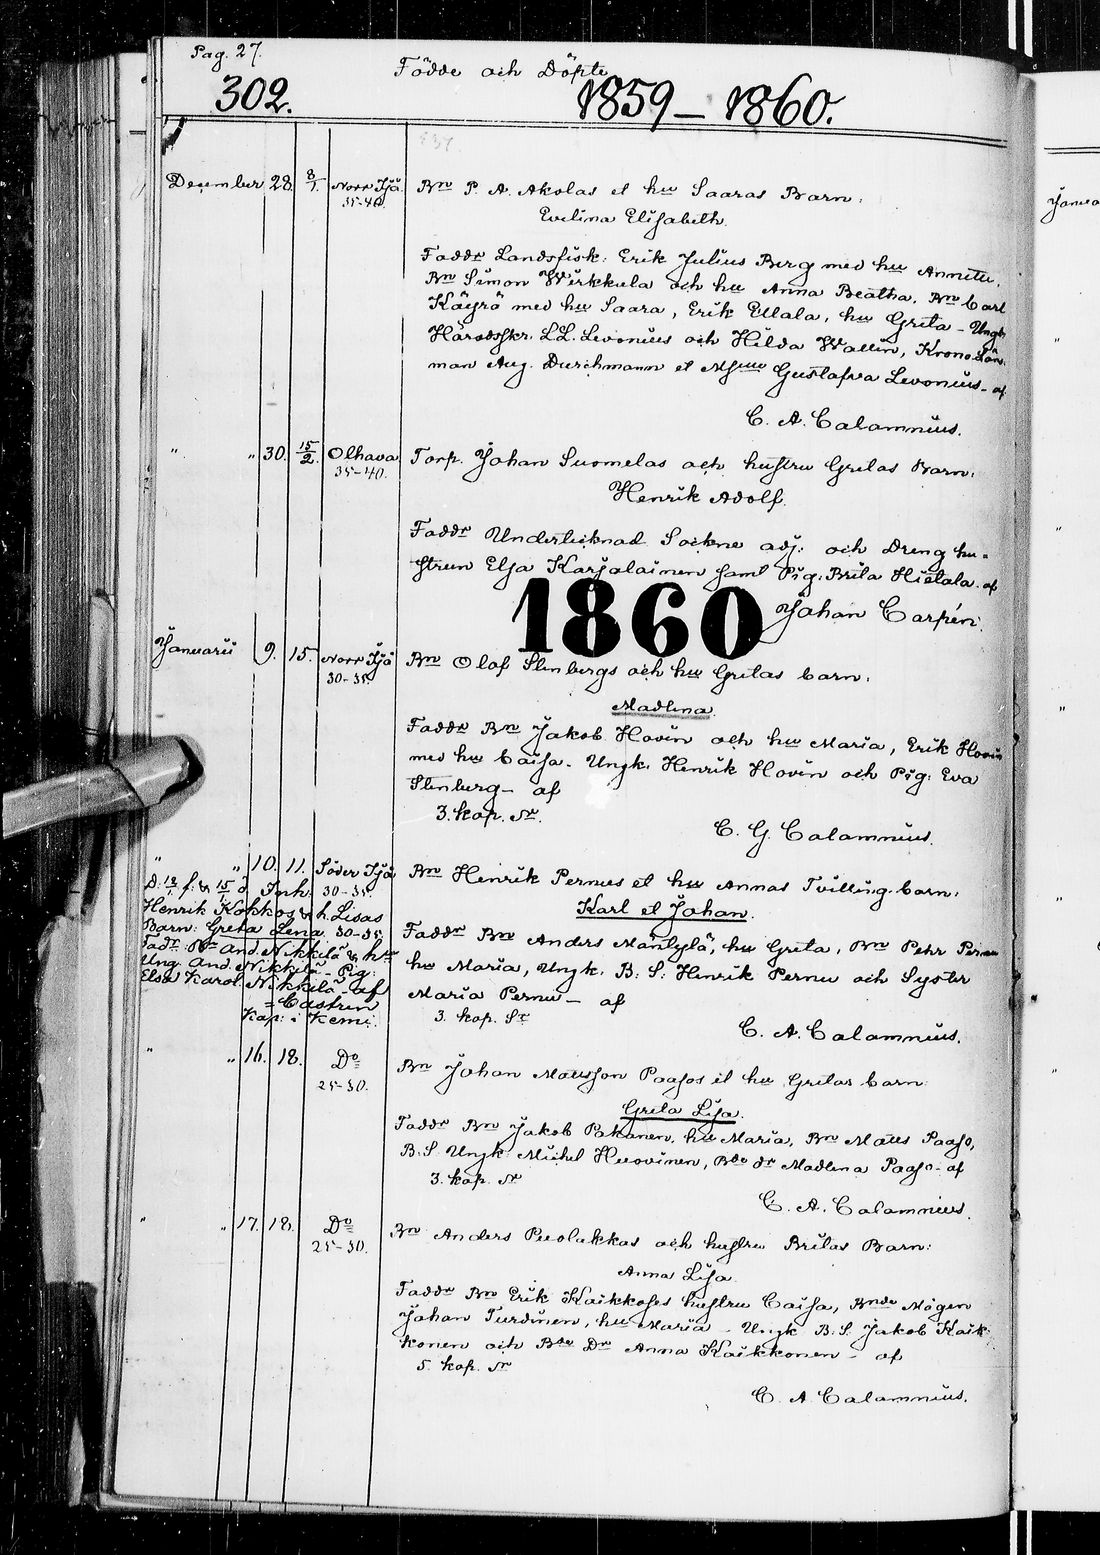 Pag. 27.
302.
Födde och Döpte
1859 – 1860.
December 28. 8/1. Norr Ijå 35-40.
Bn P. A. Akolas et hu Saaras Barn:
Evelina Elisabeth.
Faddr Landsfisk: Erik Julius Berg med hu Annette,
Bn Simon Wirkkula och hu Anna Beatha, Bn Carl
Käyrä med hu Saara, Erik Ellala, hu Greta – Ungk
Häradsskr. L.L. Levonius och Hilda Wallin, Krono Läns
man Aug. Durchmann et Gustafva Levonius – af
C. A. Calamnius.
" " 30. 15/2. Olhava 35-40.
Torp. Johan Suomelas och hustru Gretas Barn:
Henrik Adolf.
Faddr Undertecknad Sockne adj: och Dreng hu=
strun Elsa Karjalainen samt Pig: Brita Hietala. af
Johan Carpén.
1860
Januarii 9. 15. Norr Ijå 30-35.
Bn Olof Stenbergs och hu Gretas barn:
Madlena.
Faddr Bn Jakob Hovin och hu Maria, Erik Hovin
med hu Caisa. Ungk: Henrik Hovin och Pig: Eva
Stenberg – af
3. kop. Sr.
C. G. Calamnius.
" " 10. 11. Söder Ijå 30-35.
Bn Henrik Pernus et hu Annas Tvilling. barn:
Karl et Johan.
Faddr Bn Anders Mäntylä, hu Greta, Bn Pehr Pernu
hu Maria, Ungk. B. S. Henrik Pernu och Syster
Maria Pernu – af
3. kop. Sr
C. A. Calamnius.
D. f. & 15/1 d. Inh.
Henrik Kokkos & h. Lisas
Barn: Greta Lena. 30-35.
Fadr. Bn And. Nikkilä & hu
Ung. And. Nikkilä – Pig:
Elsa Karol. Nikkilä – af
= Castren
Kap: i Kemi.
" " 16. 18. Do 25-30.
Bn Johan Mattsson Paasos et hu Gretas barn:
Greta Lisa.
Faddr Bn Jakob Pakanen, hu Maria, Bn Matts Paaso,
B. S. Ungk Michel Huovinen, Bde dr Madlena Paaso – af
3. kop. Sr
C. A. Calamnius.
" " 17. 18. Do 25-30.
Bn Anders Puolakkas och hustru Britas Barn:
Anna Lisa.
Faddr Bn Erik Kaikkoses hustru Caisa, Bnde Mågen
Johan Turdinen, hu Maria – Ungk B. S. Jakob Kaik-
konen och Bde Dr Anna Kaikkonen – af
5. kop. Sr
C. A. Calamnius.